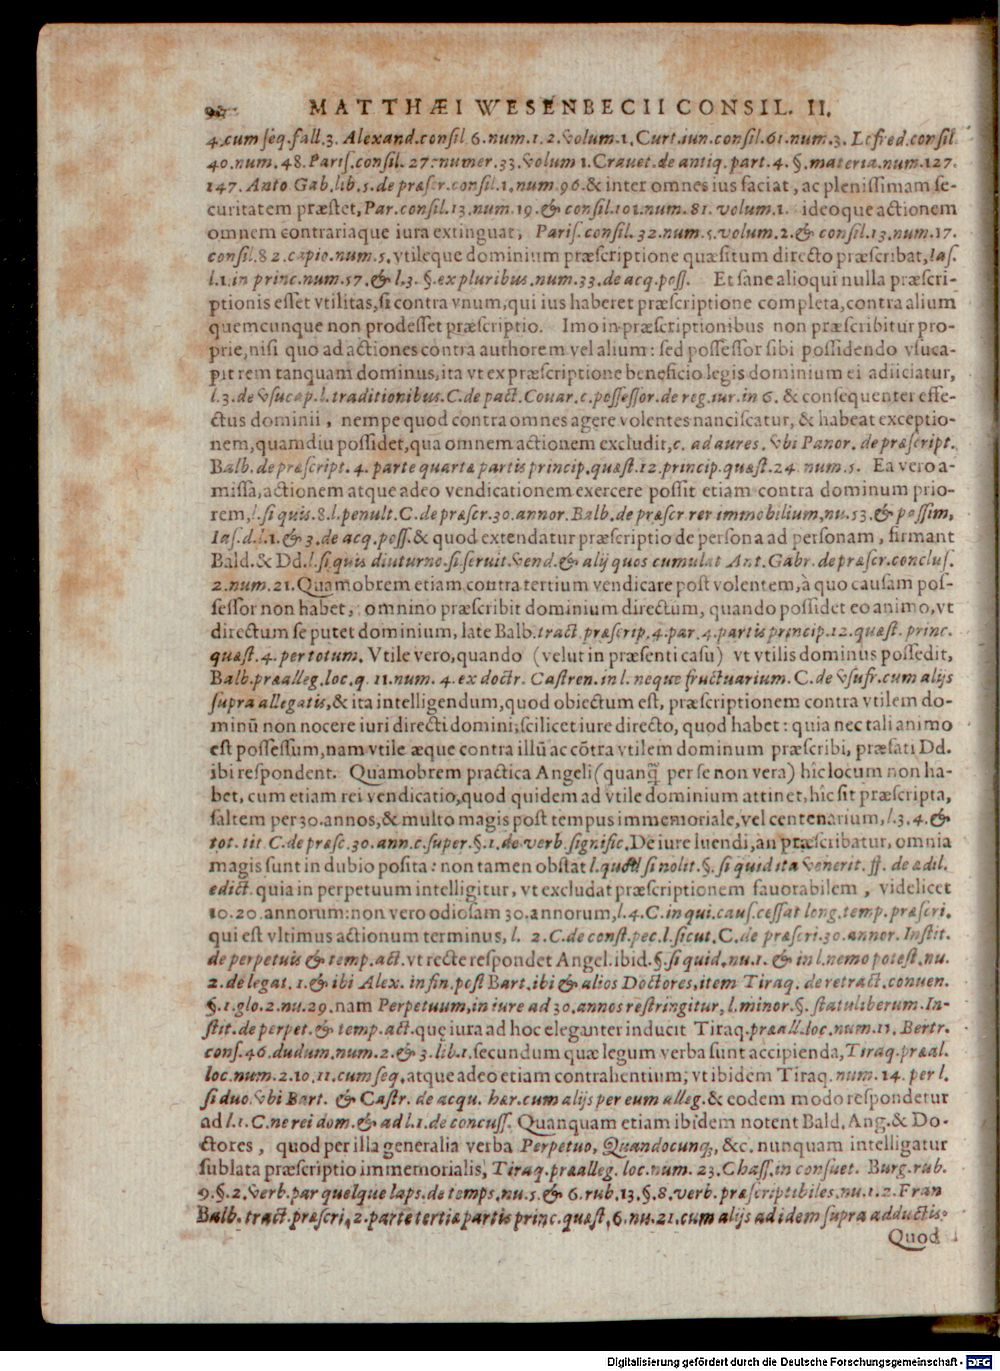 MATTHÆI WESENBECII CONSIL. II.
4. cum seq. fall. 3. Alexand. consil. 6. num. 1. 2. volum. 1. Curt. iun. consil. 61. num. 3. Lofred. consil.
40. num. 48. Paris. consil. 27. numer. 33. volum 1. Crauet. de antiq. part. 4. §. materia. num. 127.
147. Anto Gab. lib. 5. de præscr. consil. 1. num. 96. & inter omnes ius faciat, ac plenissimam se-
curitatem præstet, Par. consil. 13. num. 19. & consil. 101. num. 81. volum. 1. ideoque actionem
omnem contrariaque iura extinguat, Paris. consil. 32. num. 5. volum. 2. & consil. 13. num. 17.
consil. 82. capio. num. 5. vtileque dominium præscriptione quæsitum directo præscribat, Ias.
l. 1. in princ. num. 57. & l. 3. §. ex pluribus. num. 33. de acq. poss. Et sane alioqui nulla præscri-
ptionis esset vtilitas, si contra vnum, qui ius haberet præscriptione completa, contra alium
quemcunque non prodesset præscriptio. Imo in præscriptionibus non præscribitur pro-
prie, nisi quo ad actiones contra authorem vel alium: sed possessor sibi possidendo vsuca-
pit rem tanquam dominus, ita vt ex præscriptione beneficio legis dominium ei adiiciatur,
l. 3. de vsucap. l. traditionibus. C. de pact. Couar. c. possessor. de reg. iur. in 6. & consequenter effe-
ctus dominii, nempe quod contra omnes agere volentes nanciscatur, & habeat exceptio-
nem, quamdiu possidet, qua omnem actionem excludit, c. ad aures. vbi Panor. de præscript.
Balb. de præscript. 4. parte quartæ partis princip. quæst. 12. princip. quæst. 24. num. 5. Ea vero a-
missa, actionem atque adeo vendicationem exercere possit etiam contra dominum prio-
rem, l. si quis. 8. l. penult. C. de præscr. 30. annor. Balb. de præscr rer immobilium, nu. 53. & passim,
Ias. d. l. 1. & 3. de acq. poss. & quod extendatur præscriptio de persona ad personam, firmant
Bald. & Dd. l. si quis diuturno. si seruit. vend. & alij quos cumulat Ant. Gabr. de præscr. conclus.
2. num. 21. Quamobrem etiam contra tertium vendicare post volentem, à quo causam pos-
sessor non habet, omnino præscribit dominium directum, quando possidet eo animo, vt
directum se putet dominium, late Balb. tract. præscrip. 4. par. 4. partis princip. 12. quæst. princ.
quæst. 4. per totum. Vtile vero, quando (velut in præsenti casu) vt vtilis dominus possedit,
Balb. præalleg. loc. q. 11. num. 4. ex doctr. Castren. in l. neque fructuarium. C. de vsufr. cum alijs
supra allegatis, & ita intelligendum, quod obiectum est, præscriptionem contra vtilem do-
minū non nocere iuri directi domini, scilicet iure directo, quod habet: quia nec tali animo
est possessum, nam vtile æque contra illū ac cōtra vtilem dominum præscribi, præfati Dd.
ibi respondent. Quamobrem practica Angeli (quanq̃ per se non vera) hîc locum non ha-
bet, cum etiam rei vendicatio, quod quidem ad vtile dominium attinet, hîc sit præscripta,
saltem per 30. annos, & multo magis post tempus immemoriale, vel centenarium, l. 3. 4. &
tot. tit C. de præsc. 30. ann. c. super. §. 1. de verb. signific. De iure luendi, an præscribatur, omnia
magis sunt in dubio posita: non tamen obstat l. quod si nolit. §. si quid ita venerit. ff. de ædil.
edict. quia in perpetuum intelligitur, vt excludat præscriptionem fauorabilem, videlicet
10. 20. annorum: non vero odiosam 30. annorum, l. 4. C. in qui. caus. cessat long. temp. præscri.
qui est vltimus actionum terminus, l. 2. C. de const. pec. l. sicut. C. de præscri. 30. annor. Instit.
de perpetuis & temp. act. vt recte respondet Angel. ibid. §. si quid. nu. 1. & in l. nemo potest. nu.
2. de legat. 1. & ibi Alex. in fin. post Bart. ibi & alios Doctores, item Tiraq. de retract. conuen.
§. 1. glo. 2. nu. 29. nam Perpetuum, in iure ad 30. annos restringitur, l. minor. §. statuliberum. In-
stit. de perpet. & temp. act. quę iura ad hoc eleganter inducit Tiraq. præall. loc. num. 11. Bertr.
cons. 46. dudum. num. 2. & 3. lib. 1. secundum quæ legum verba sunt accipienda, Tiraq. præal.
loc. num. 2. 10. 11. cum seq. atque adeo etiam contrahentium, vt ibidem Tiraq. num. 14. per l.
si duo. vbi Bart. & Castr. de acqu. hær. cum alijs per eum alleg. & eodem modo respondetur
ad l. 1. C. ne rei dom. & ad l. 1. de concuss. Quanquam etiam ibidem notent Bald. Ang. & Do-
ctores, quod per illa generalia verba Perpetuo, Quandocunq;, &c. nunquam intelligatur
sublata præscriptio immemorialis, Tiraq. præalleg. loc. num. 23. Chass. in consuet. Burg. rub.
9. §. 2. verb. par quelque laps. de temps. nu. 5. & 6. rub. 13. §. 8. verb. præscriptibiles. nu. 1. 2. Fran
Balb. tract. præscri. 2. parte tertiæ partis princ. quæst. 6. nu. 21. cum alijs ad idem supra adductis.
Quod
Digitalisierung gefördert durch die Deutsche Forschungsgemeinschaft - DFG